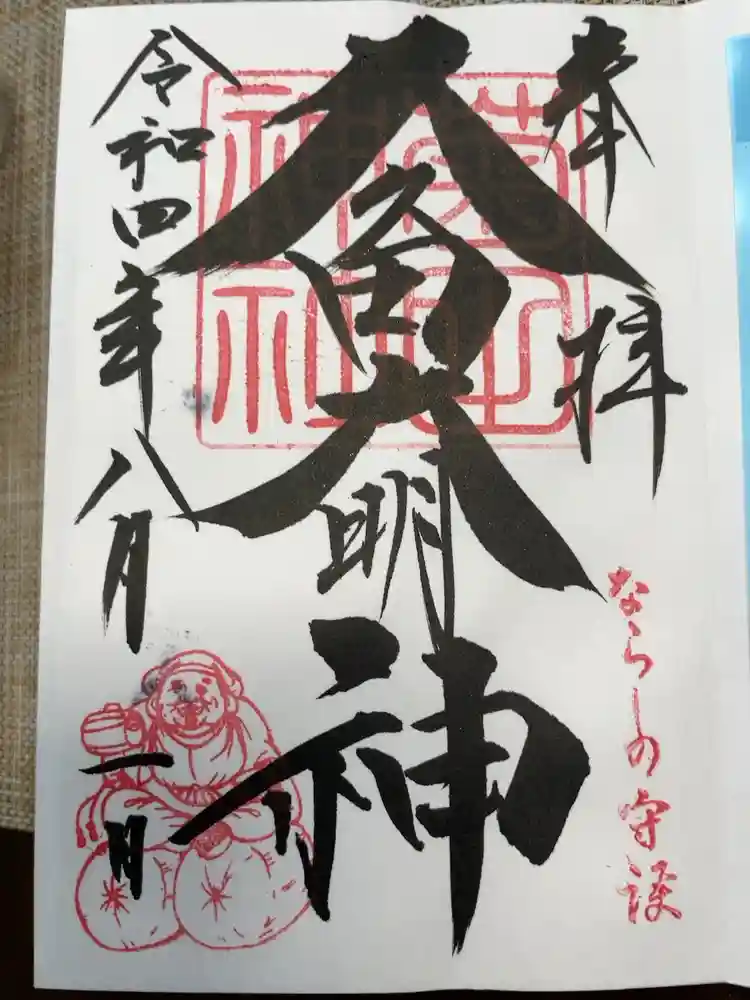 奉拝
ならしの守護
菊田
神社
久久田大明神
令和四年八月一日